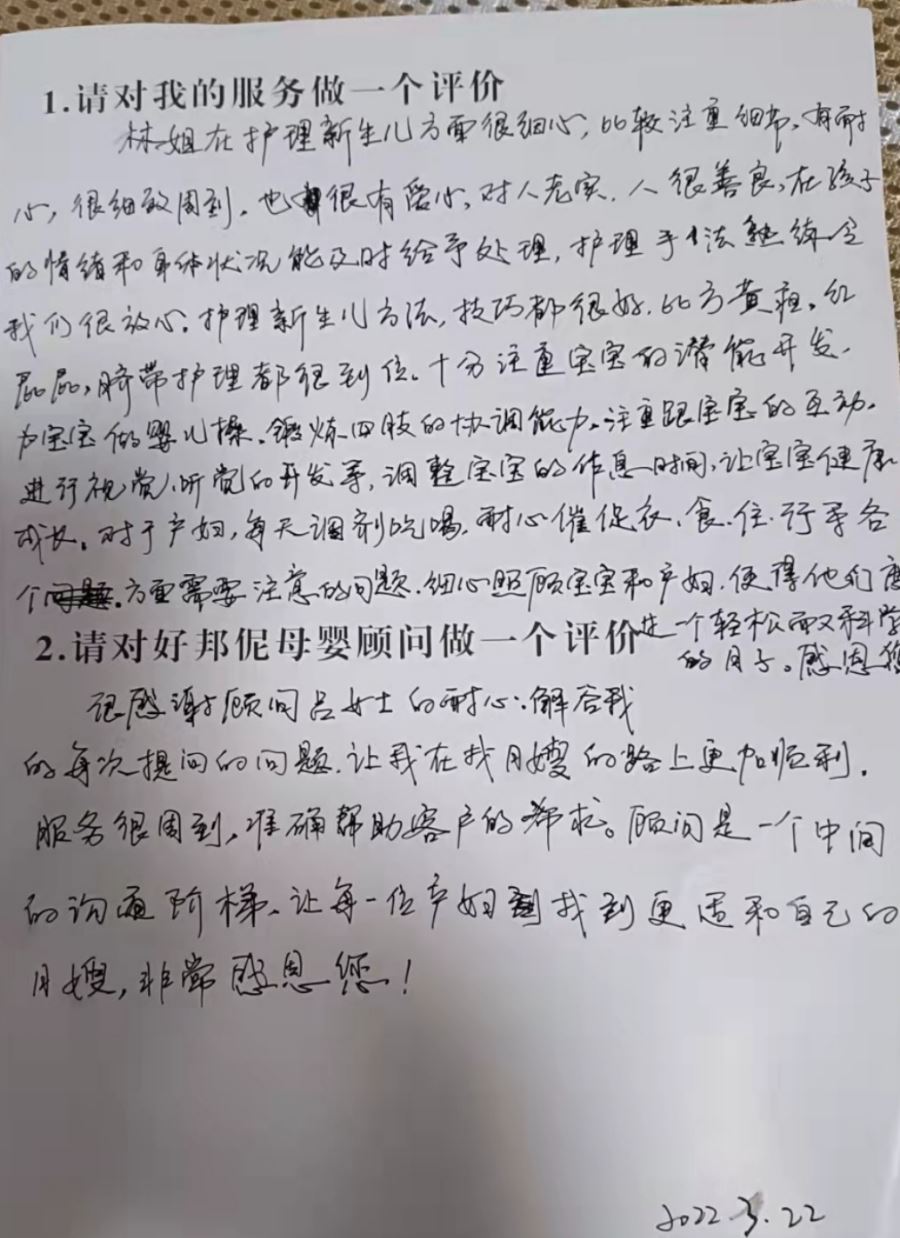 1.请对我的服务做一个评价
林姐在护理新生儿方面很细心,比较注重细节、有耐
心,很细致周到,也很有爱心,对人老实,人很善良,在孩子
的情绪和身体状况能及时给予处理,护理手法熟练令
我们很放心。护理新生儿方法,技巧都很好,比方黄疸。红
屁屁,脐带护理都很到位。十分注重宝宝的潜能开发.
为宝宝做婴儿操、锻炼四肢的协调能力。注重跟宝宝的互动。
进行视觉、听觉的开发等,调整宝宝的作息时间,让宝宝健康
成长。对于产妇,每天调剂吃喝,耐心催促衣、食、住、行等各
个方面需要注意的问题.细心照顾宝宝和产妇.使得他们度
2.请对好邦伲母婴顾问做一个评价
过一个轻松而又科学
的月子。感恩您
很感谢顾问吕女士的耐心.解答我
的每次提问的问题.让我在找月嫂的路上更加顺利.
服务很周到、准确帮助客户的需求。顾问是一个中间
的沟通阶梯、让每一位产妇找到更适和自己的
月嫂,非常感恩您!
2022.3.22